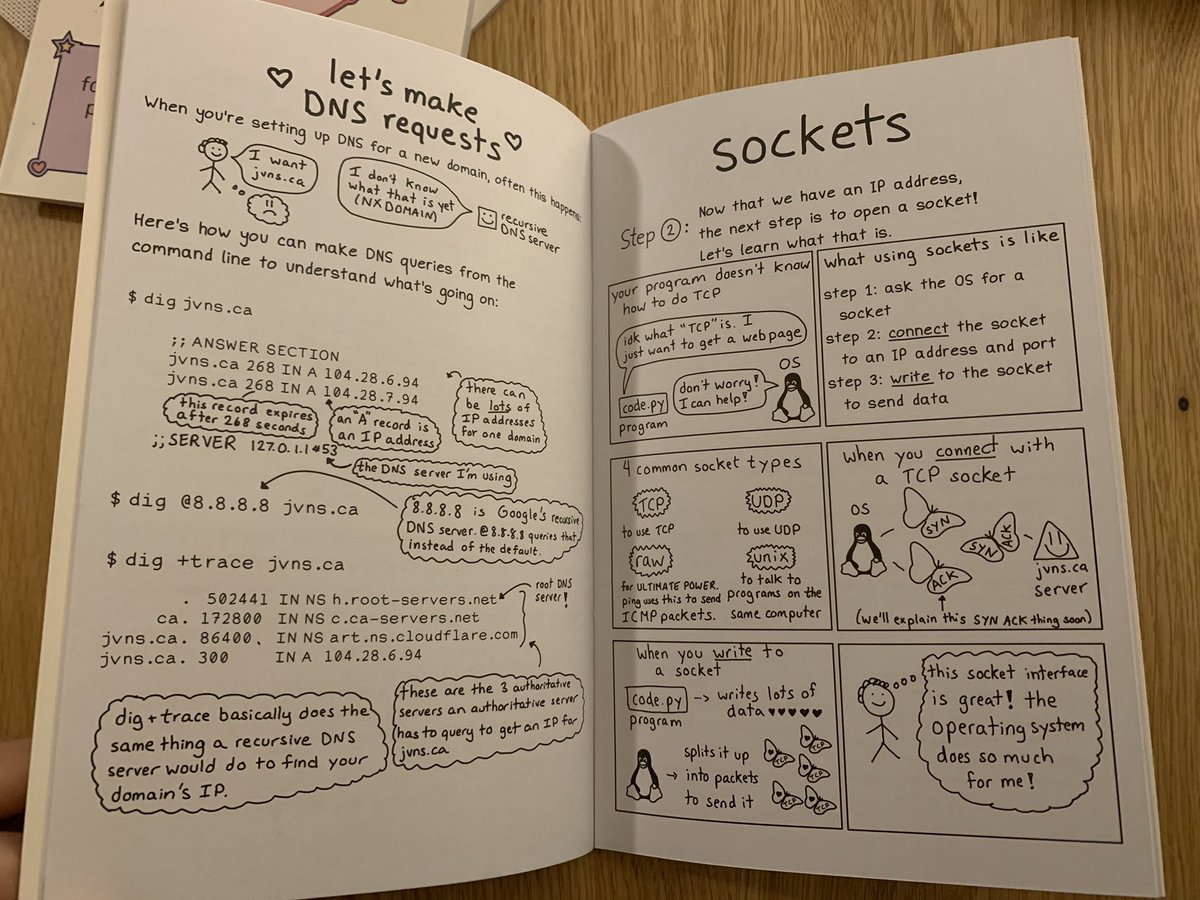 let's make
DNS requests
When you're setting up DNS for a new domain, often this happens:
I want
jvns.ca
I don't know
what that is yet
(NXDOMAIN)
recursive
DNS server
Here's how you can make DNS queries from the
command line to understand what's going on:
$ dig jvns.ca
;; ANSWER SECTION
jvns.ca 268 IN A 104.28.6.94
jvns.ca 268 IN A 104.28.7.94
there can
be lots of
IP addresses
for one domain
this record expires
after 268 seconds
an "A" record is
an IP address
;; SERVER 127.0.1.1#53
the DNS server I'm using
$ dig @8.8.8.8 jvns.ca
8.8.8.8 is Google's recursive
DNS server. @8.8.8.8 queries that
instead of the default.
$ dig +trace jvns.ca
root DNS
server!
. 502441 IN NS h.root-servers.net
ca. 172800 IN NS c.ca-servers.net
jvns.ca. 86400 IN NS art.ns.cloudflare.com
jvns.ca. 300 IN A 104.28.6.94
dig +trace basically does the
same thing a recursive DNS
server would do to find your
domain's IP.
these are the 3 authoritative
servers an authoritative server
has to query to get an IP for
jvns.ca
sockets
Step 2:
Now that we have an IP address,
the next step is to open a socket!
Let's learn what that is.
your program doesn't know
how to do TCP
idk what "TCP" is. I
just want to get a webpage
code.py
program
don't worry!
I can help!
OS
what using sockets is like
step 1: ask the OS for a
socket
step 2: connect the socket
to an IP address and port
step 3: write to the socket
to send data
4 common socket types
TCP
to use TCP
UDP
to use UDP
raw
for ULTIMATE POWER.
ping uses this to send
ICMP packets.
unix
to talk to
programs on the
same computer
when you connect with
a TCP socket
OS
SYN
SYN ACK
ACK
jvns.ca
server
(we'll explain this SYN ACK thing soon)
when you write to
a socket
code.py
program
→ writes lots of
data ♥♥♥♥♥
→ splits it up
into packets
to send it
TCP
TCP
TCP
TCP
TCP
this socket interface
is great! the
operating system
does so much
for me!